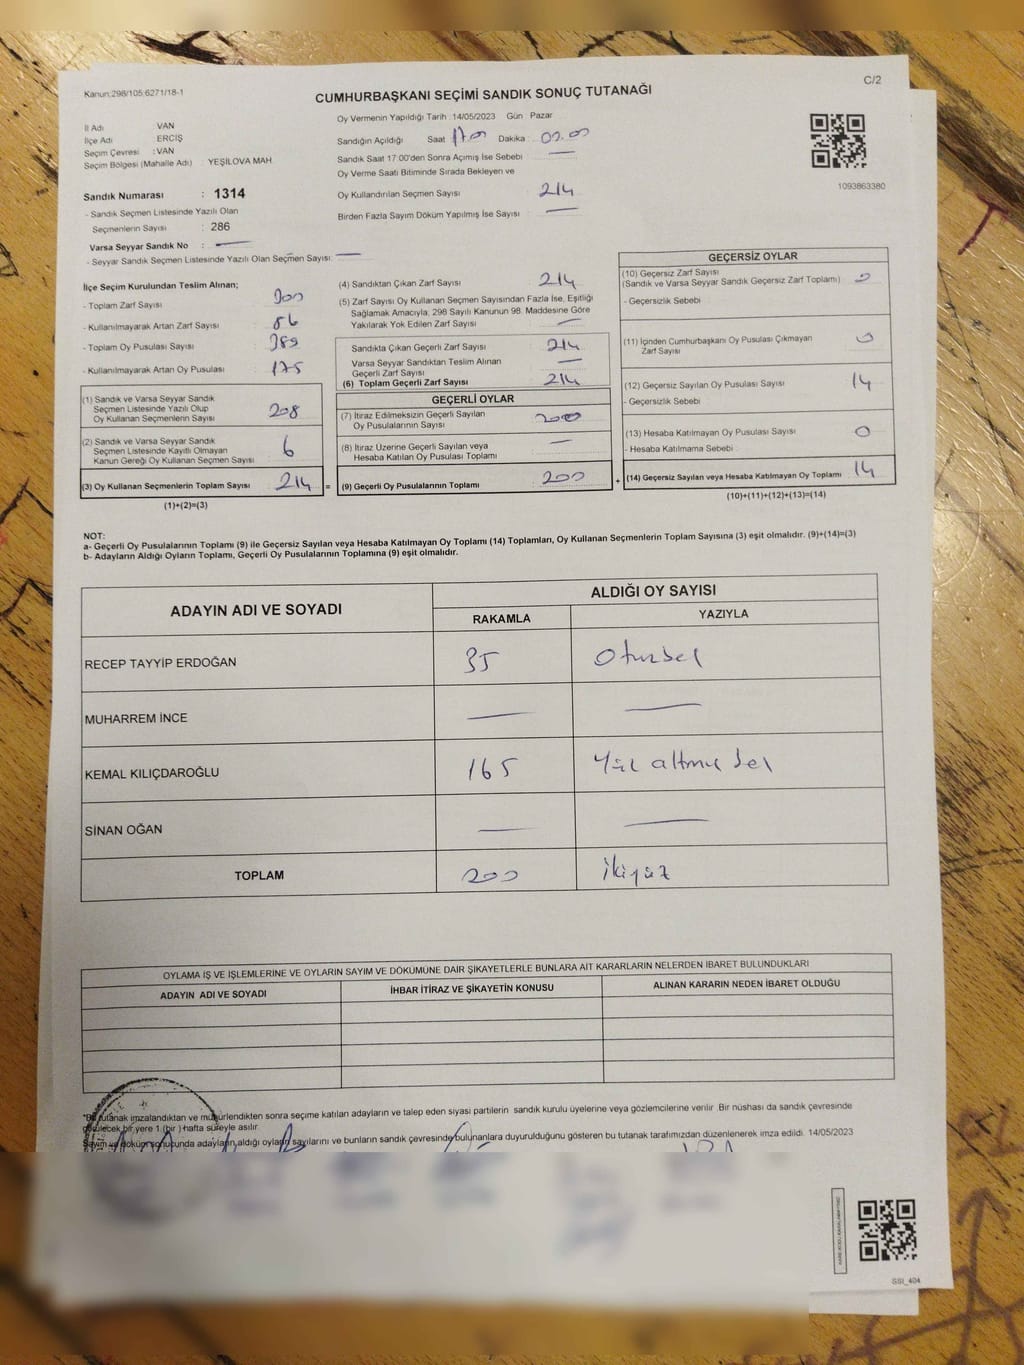 Kanun:298/105;6271/18-1
C/2
CUMHURBAŞKANI SEÇİMİ SANDIK SONUÇ TUTANAĞI
İl Adı VAN
İlçe Adı ERCİŞ
Seçim Çevresi : VAN
Seçim Bölgesi (Mahalle Adı) : YEŞİLOVA MAH
Sandık Numarası : 1314
- Sandık Seçmen Listesinde Yazılı Olan
Seçmenlerin Sayısı : 286
Varsa Seyyar Sandık No : —
- Seyyar Sandık Seçmen Listesinde Yazılı Olan Seçmen Sayısı: —
Oy Vermenin Yapıldığı Tarih 14/05/2023 Gün Pazar
Sandığın Açıldığı Saat 17.00 Dakika : 00.00
Sandık Saat 17 00'den Sonra Açımış İse Sebebi —
Oy Verme Saati Bitiminde Sırada Bekleyen ve
Oy Kullandırılan Seçmen Sayısı 214
Birden Fazla Sayım Döküm Yapılmış İse Sayısı —
1093863380
İlçe Seçim Kurulundan Teslim Alınan;
- Toplam Zarf Sayısı 300
- Kullanılmayarak Artan Zarf Sayısı 86
- Toplam Oy Pusulası Sayısı 389
- Kullanılmayarak Artan Oy Pusulası 175
(1) Sandık ve Varsa Seyyar Sandık
Seçmen Listesinde Yazılı Olup
Oy Kullanan Seçmenlerin Sayısı 208
(2) Sandık ve Varsa Seyyar Sandık
Seçmen Listesinde Kayıtlı Olmayan
Kanun Gereği Oy Kullanan Seçmen Sayısı 6
(3) Oy Kullanan Seçmenlerin Toplam Sayısı 214 =
(1)+(2)=(3)
(4) Sandıktan Çıkan Zarf Sayısı 214
(5) Zarf Sayısı Oy Kullanan Seçmen Sayısından Fazla İse, Eşitliği
Sağlamak Amacıyla; 298 Sayılı Kanunun 98. Maddesine Göre
Yakılarak Yok Edilen Zarf Sayısı —
Sandıkta Çıkan Geçerli Zarf Sayısı 214
Varsa Seyyar Sandıktan Teslim Alınan
Geçerli Zarf Sayısı —
(6) Toplam Geçerli Zarf Sayısı 214
GEÇERLİ OYLAR
(7) İtiraz Edilmeksizin Geçerli Sayılan
Oy Pusulalarının Sayısı 200
(8) İtiraz Üzerine Geçerli Sayılan veya
Hesaba Katılan Oy Pusulası Toplamı —
(9) Geçerli Oy Pusulalarının Toplamı 200 +
GEÇERSİZ OYLAR
(10) Geçersiz Zarf Sayısı
(Sandık ve Varsa Seyyar Sandık Geçersiz Zarf Toplamı) 0
- Geçersizlik Sebebi
(11) İçinden Cumhurbaşkanı Oy Pusulası Çıkmayan
Zarf Sayısı 0
(12) Geçersiz Sayılan Oy Pusulası Sayısı 14
- Geçersizlik Sebebi
(13) Hesaba Katılmayan Oy Pusulası Sayısı 0
- Hesaba Katılmama Sebebi
(14) Geçersiz Sayılan veya Hesaba Katılmayan Oy Toplamı 14
(10)+(11)+(12)+(13)=(14)
NOT:
a- Geçerli Oy Pusulalarının Toplamı (9) ile Geçersiz Sayılan veya Hesaba Katılmayan Oy Toplamı (14) Toplamları, Oy Kullanan Seçmenlerin Toplam Sayısına (3) eşit olmalıdır. (9)+(14)=(3)
b- Adayların Aldığı Oyların Toplamı, Geçerli Oy Pusulalarının Toplamına (9) eşit olmalıdır.
ADAYIN ADI VE SOYADI ALDIĞI OY SAYISI
RAKAMLA YAZIYLA
RECEP TAYYİP ERDOĞAN 35 Oturbeş
MUHARREM İNCE — —
KEMAL KILIÇDAROĞLU 165 Yüz altmış beş
SİNAN OĞAN — —
TOPLAM 200 İkiyüz
OYLAMA İŞ VE İŞLEMLERİNE VE OYLARIN SAYIM VE DÖKÜMÜNE DAİR ŞİKAYETLERLE BUNLARA AİT KARARLARIN NELERDEN İBARET BULUNDUKLARI
ADAYIN ADI VE SOYADI İHBAR İTİRAZ VE ŞİKAYETİN KONUSU ALINAN KARARIN NEDEN İBARET OLDUĞU
*Bu tutanak imzalandıktan ve mühürlendikten sonra seçime katılan adayların ve talep eden siyasi partilerin sandık kurulu üyelerine veya gözlemcilerine verilir. Bir nüshası da sandık çevresinde
görülecek bir yere 1 (bir) hafta süreyle asılır.
Sayım ve döküm sonucunda adayların aldığı oyların sayılarını ve bunların sandık çevresinde bulunanlara duyurulduğunu gösteren bu tutanak tarafımızdan düzenlenerek imza edildi. 14/05/2023
SSI_404